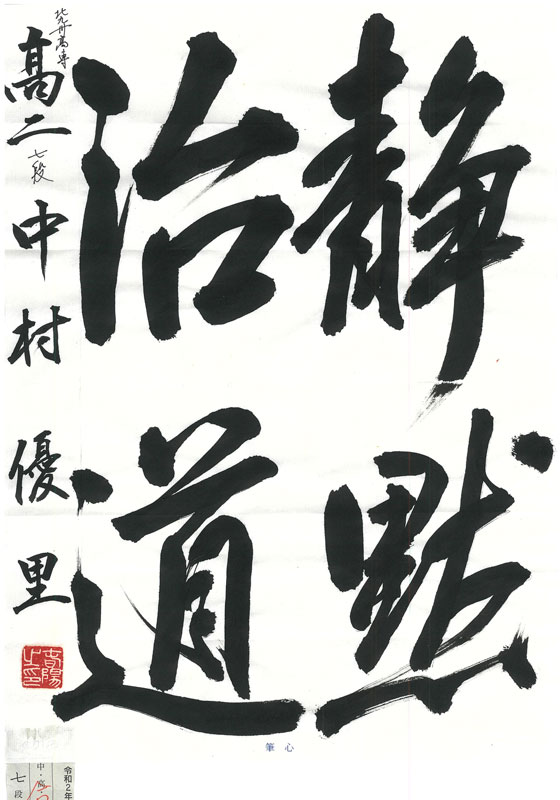 静黙
治道
北九州高専
高二 七段 中村 優里
筆心
令和2年
中・高
七段